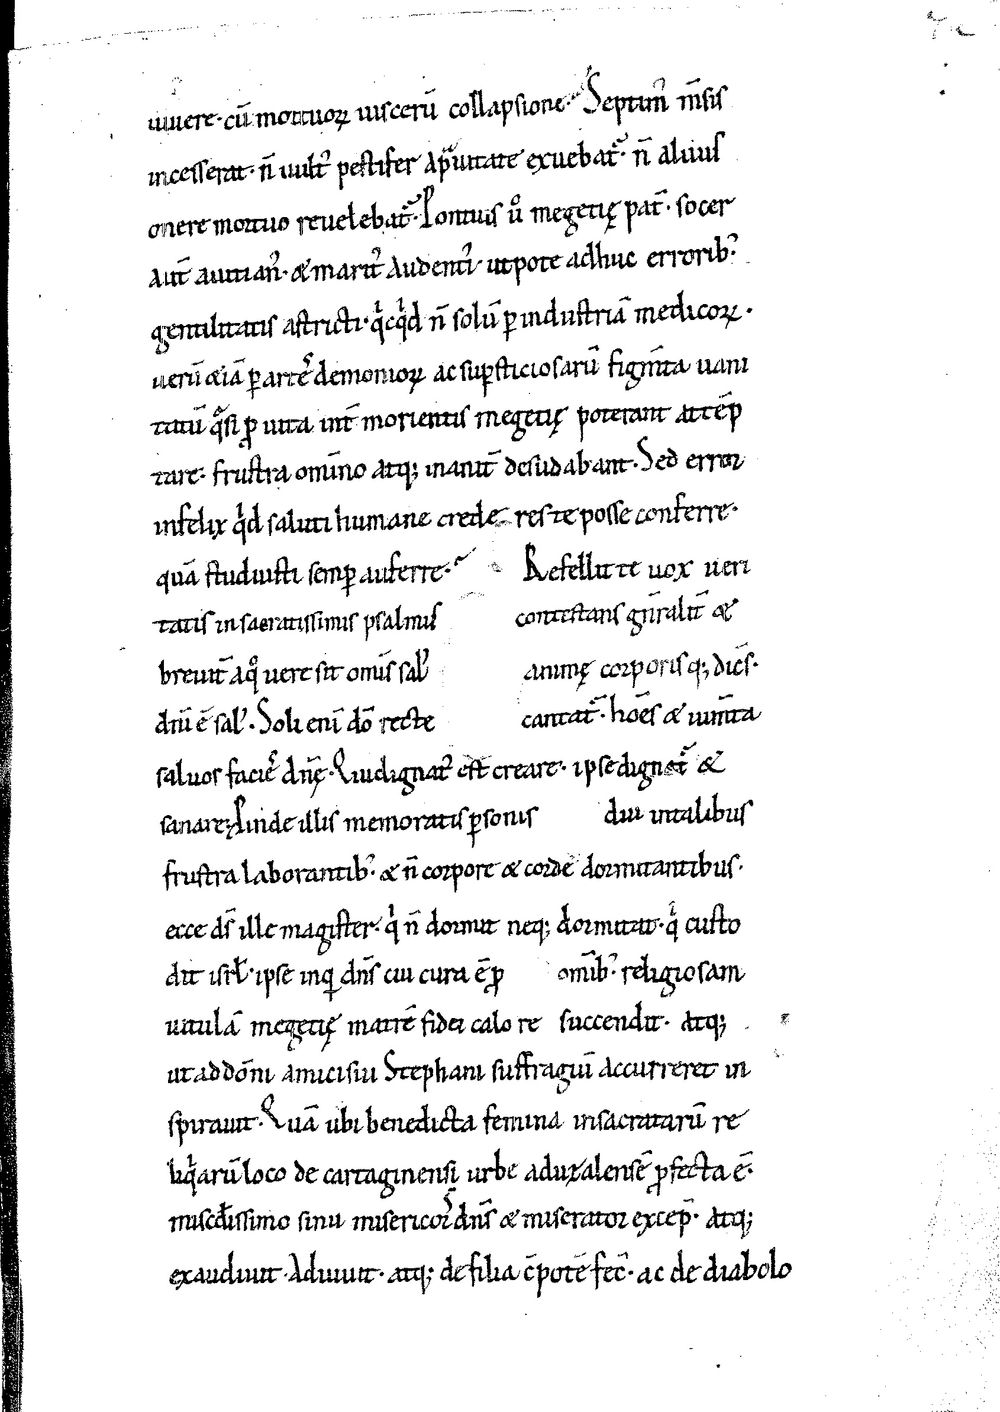 uiuere· cū mortuoꝝ uiscerū collapsione· Septim᾽ m̄sis
incesserat· n̄ uult᾽ pestifer a prauitate exuebat᷑· n̄ aluus
onere mortuo reuelebat᷑· Pontius ů megetię pat̄· socer
aut̄ auitian᾽· & marit᾽ Audenti᾽ utpote adhuc errorib᾽
gentilitatis astricti· qͥcqͥd n̄ solū ꝑ industriā medicoꝝ·
uerū &iā ꝑ artē demonioꝝ ac suꝑsticiosarū figm̄ta uani
tatū qͣsi ꝓ uita int̄ morientis megetię poterant attēp
tare· frustra omīno atq; inanit̄ desudabant· Sed error
infelix qͥd saluti humane crede res te posse conferre·
quā studuisti semꝑ auferre· Refellit te uox ueri
tatis in sacratissimis psalmis contestans gn̄ralit̄ &
breuit̄ a qͦ uere sit om̄is sal᾽ animę corporisq; dicēs·
dn̄i ē sal᾽· Soli enī dō recte cantat᷑· hoēs & ium̄ta
saluos faciē᷑ dn̄ę· Qui dignat᷑ est creare· ipse dignat᷑ &
sanare· Proinde illis memoratis ꝑsonis diu uitalibus
frustra laborantib᾽· & n̄ corpore & corde dormitantibus·
ecce ds̄ ille magister· qͥ n̄ dormit neq; dormitat· qͥ custo
dit isrł· ipse inqͣ dn̄s cui cura ē ꝓ om̄ib᾽· religiosam
uitulā megetię matrē fidei calore succendit· Atq;
ut ad dōni amici sui Stephani suffragiū accurreret in
spirauit· Quā ubi benedicta femina in sacratarū re
liqͥarū loco de cartaginensi urbe ad uzalensē ꝓfecta ē·
misc̄dissimo sinu misericors dn̄s & miserator excep̄· Atq;
exaudiuit· Adiuuit· atq; de filia c̄potē fec̄· ac de diabolo